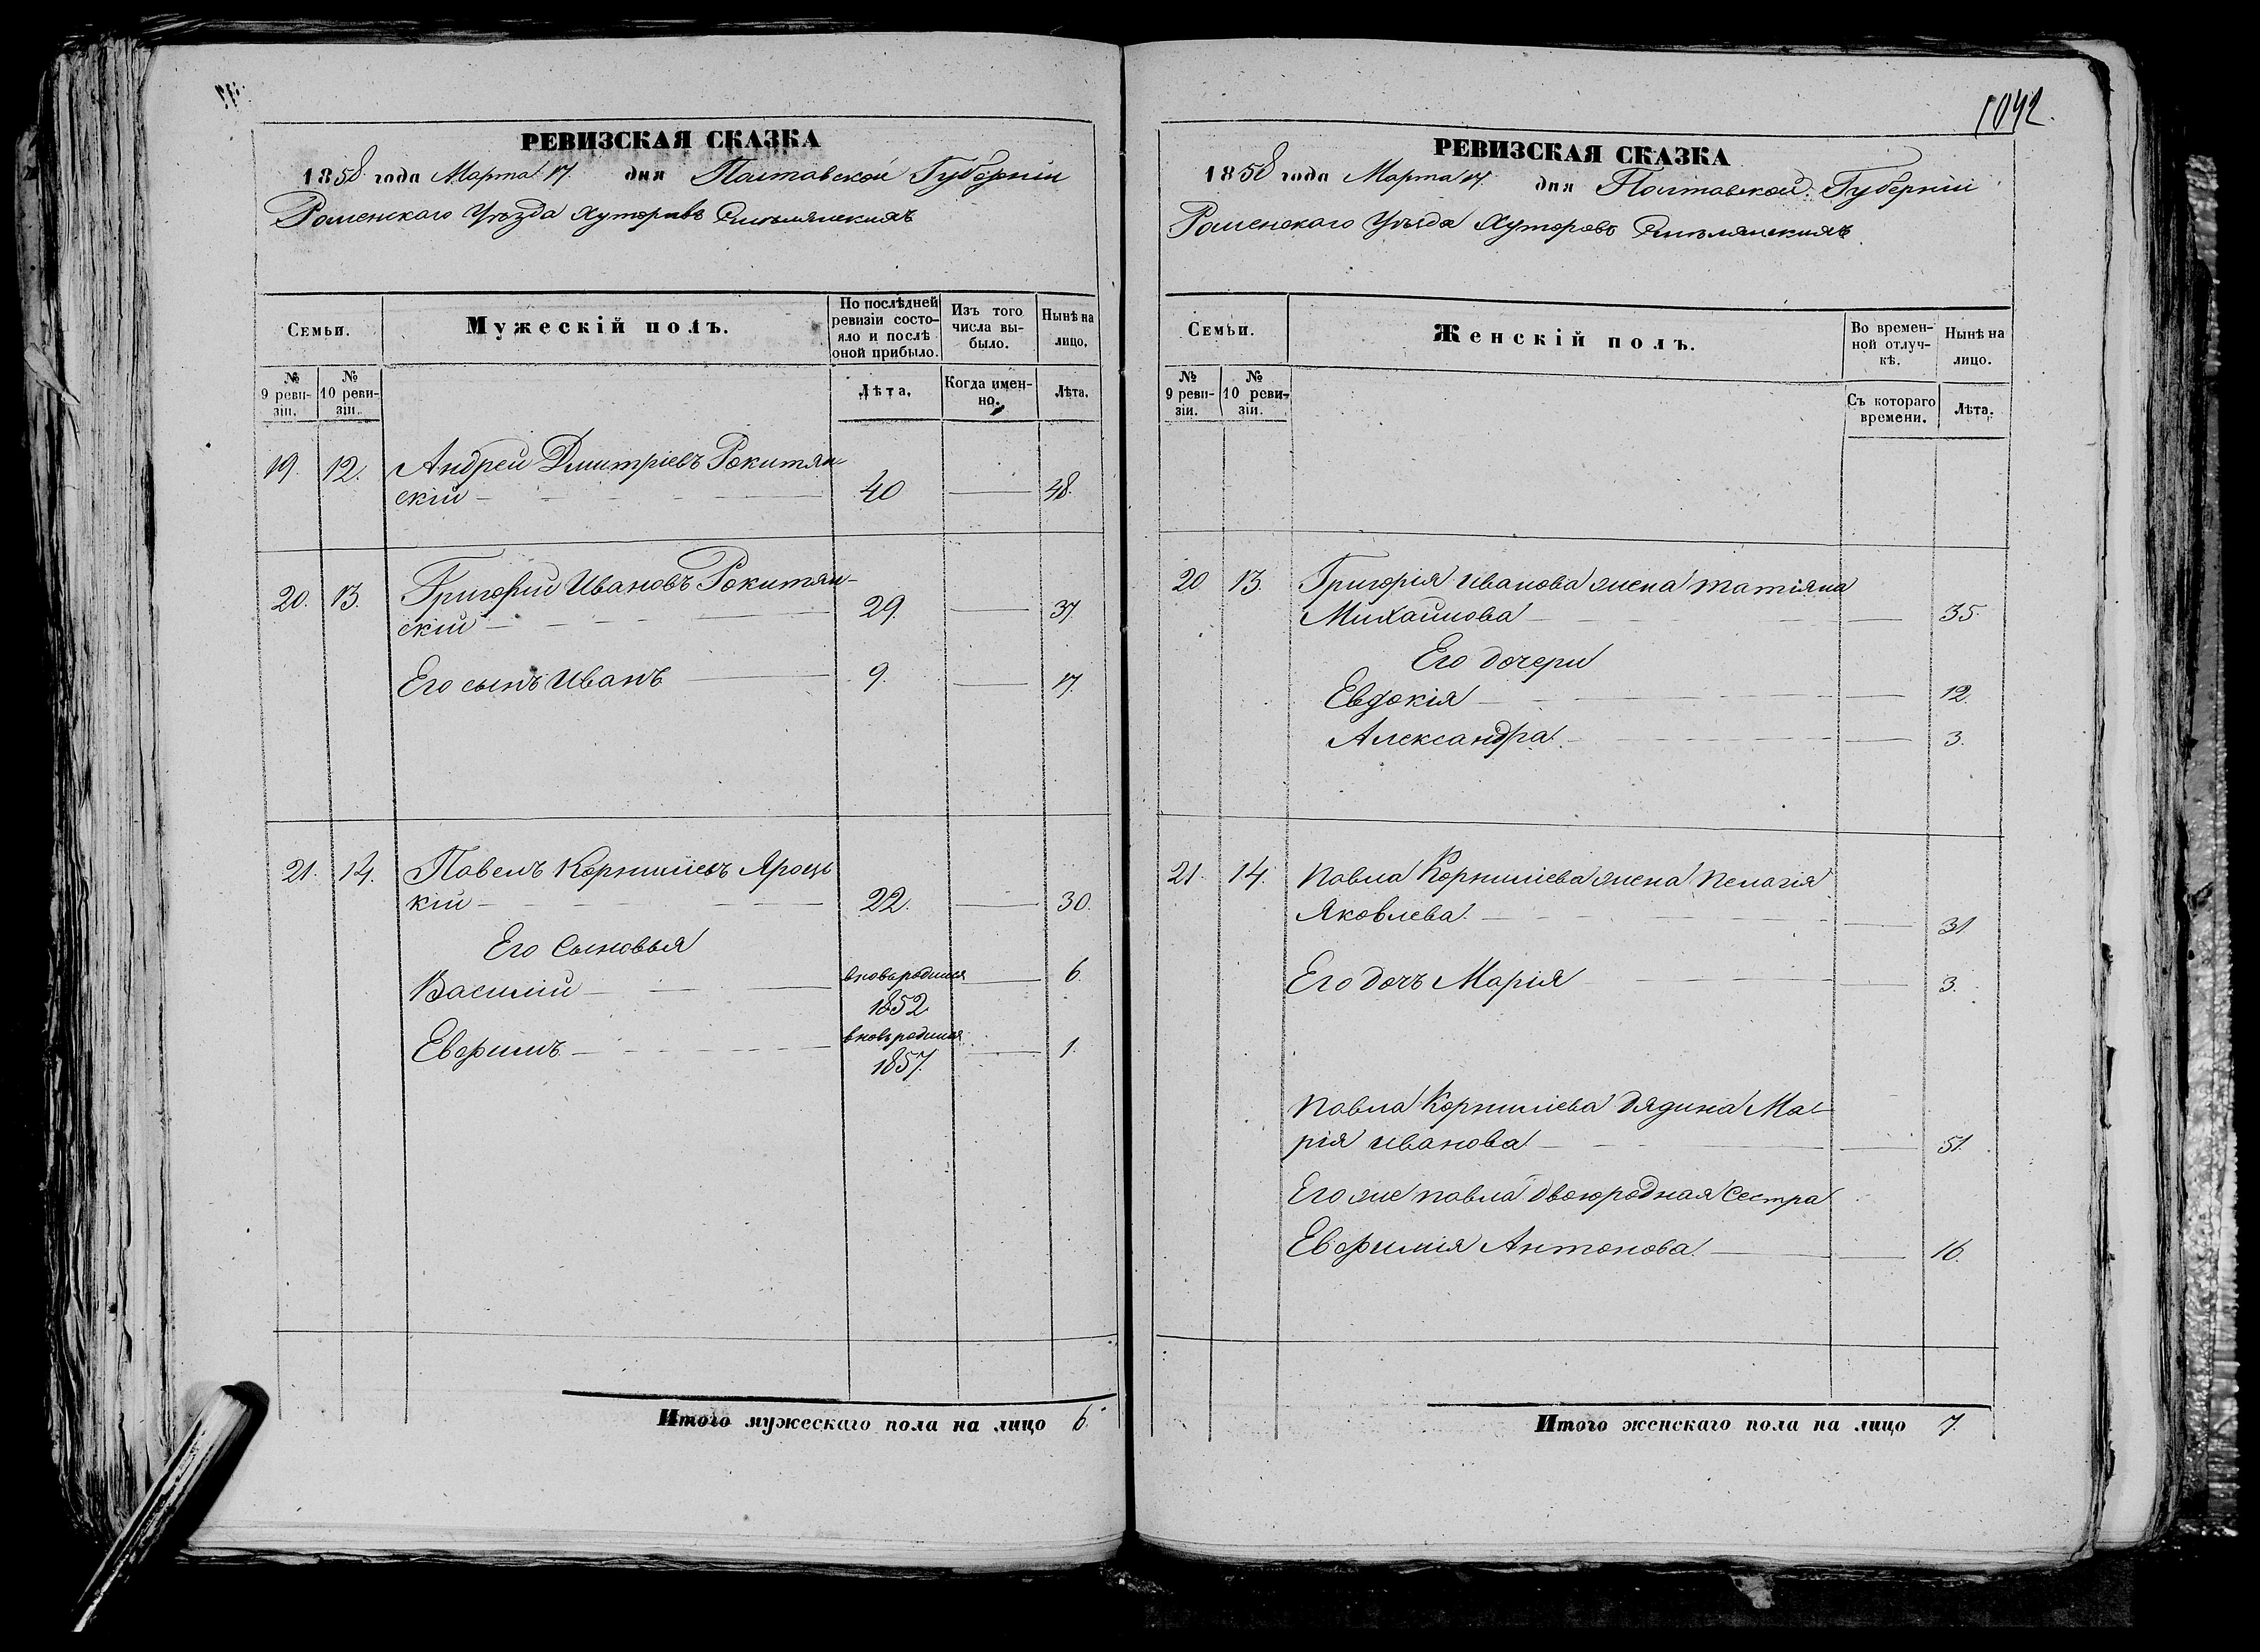 РЕВИЗСКАЯ СКАЗКА
1858 года Марта 17. дня Полтавской Губерніи
Роменского Уезда Хуторовъ
Семьи.
Мужескій полъ.
По послѣдней ревизіи состо-
яло и послѣ
оной прибыло.
Изъ того
числа вы-
было.
Нынѣ на
лицо.
№
9 реви-
зіи.
№
10 реви-
зіи.
Лѣта.
Когда имен-
но.
Лѣта.
19. 12. Андрей Дмитріевъ Рокитян-
скій 40 48.
20. 13. Григорій Ивановъ Рокитян-
скій 29. 37.
Его сынъ Иванъ 9. 17.
21. 14. Павелъ Корниліевъ Яроць
кій 22. 30.
Его Сыновья
Василій вновьродился 6.
1852
Евфимъ вновьродился 1.
1857.
Итого мужескаго пола на лицо 6.
1042.
РЕВИЗСКАЯ СКАЗКА
1858 года Марта 17. дня Полтавской Губерніи
Роменского Уезда Хуторовъ
Семьи.
Женскій полъ.
Во времен-
ной отлуч-
кѣ.
Нынѣ на
лицо.
№
9 реви-
зіи.
№
10 реви-
зіи.
Съ котораго
времени.
Лѣта.
20 13. Григорія Иванова жена Татіяна
Михайлова 35.
Его дочери
Евдокія 12.
Александра 3.
21. 14. Павла Корниліева жена Пелагія
Яковлева 31.
Его дочь Марія 3.
Павла Корниліева дядина Ма-
рія Иванова 51.
Его же Павла двоюродная Сестра
Евфимія Антонова 16.
Итого женскаго пола на лицо 7.